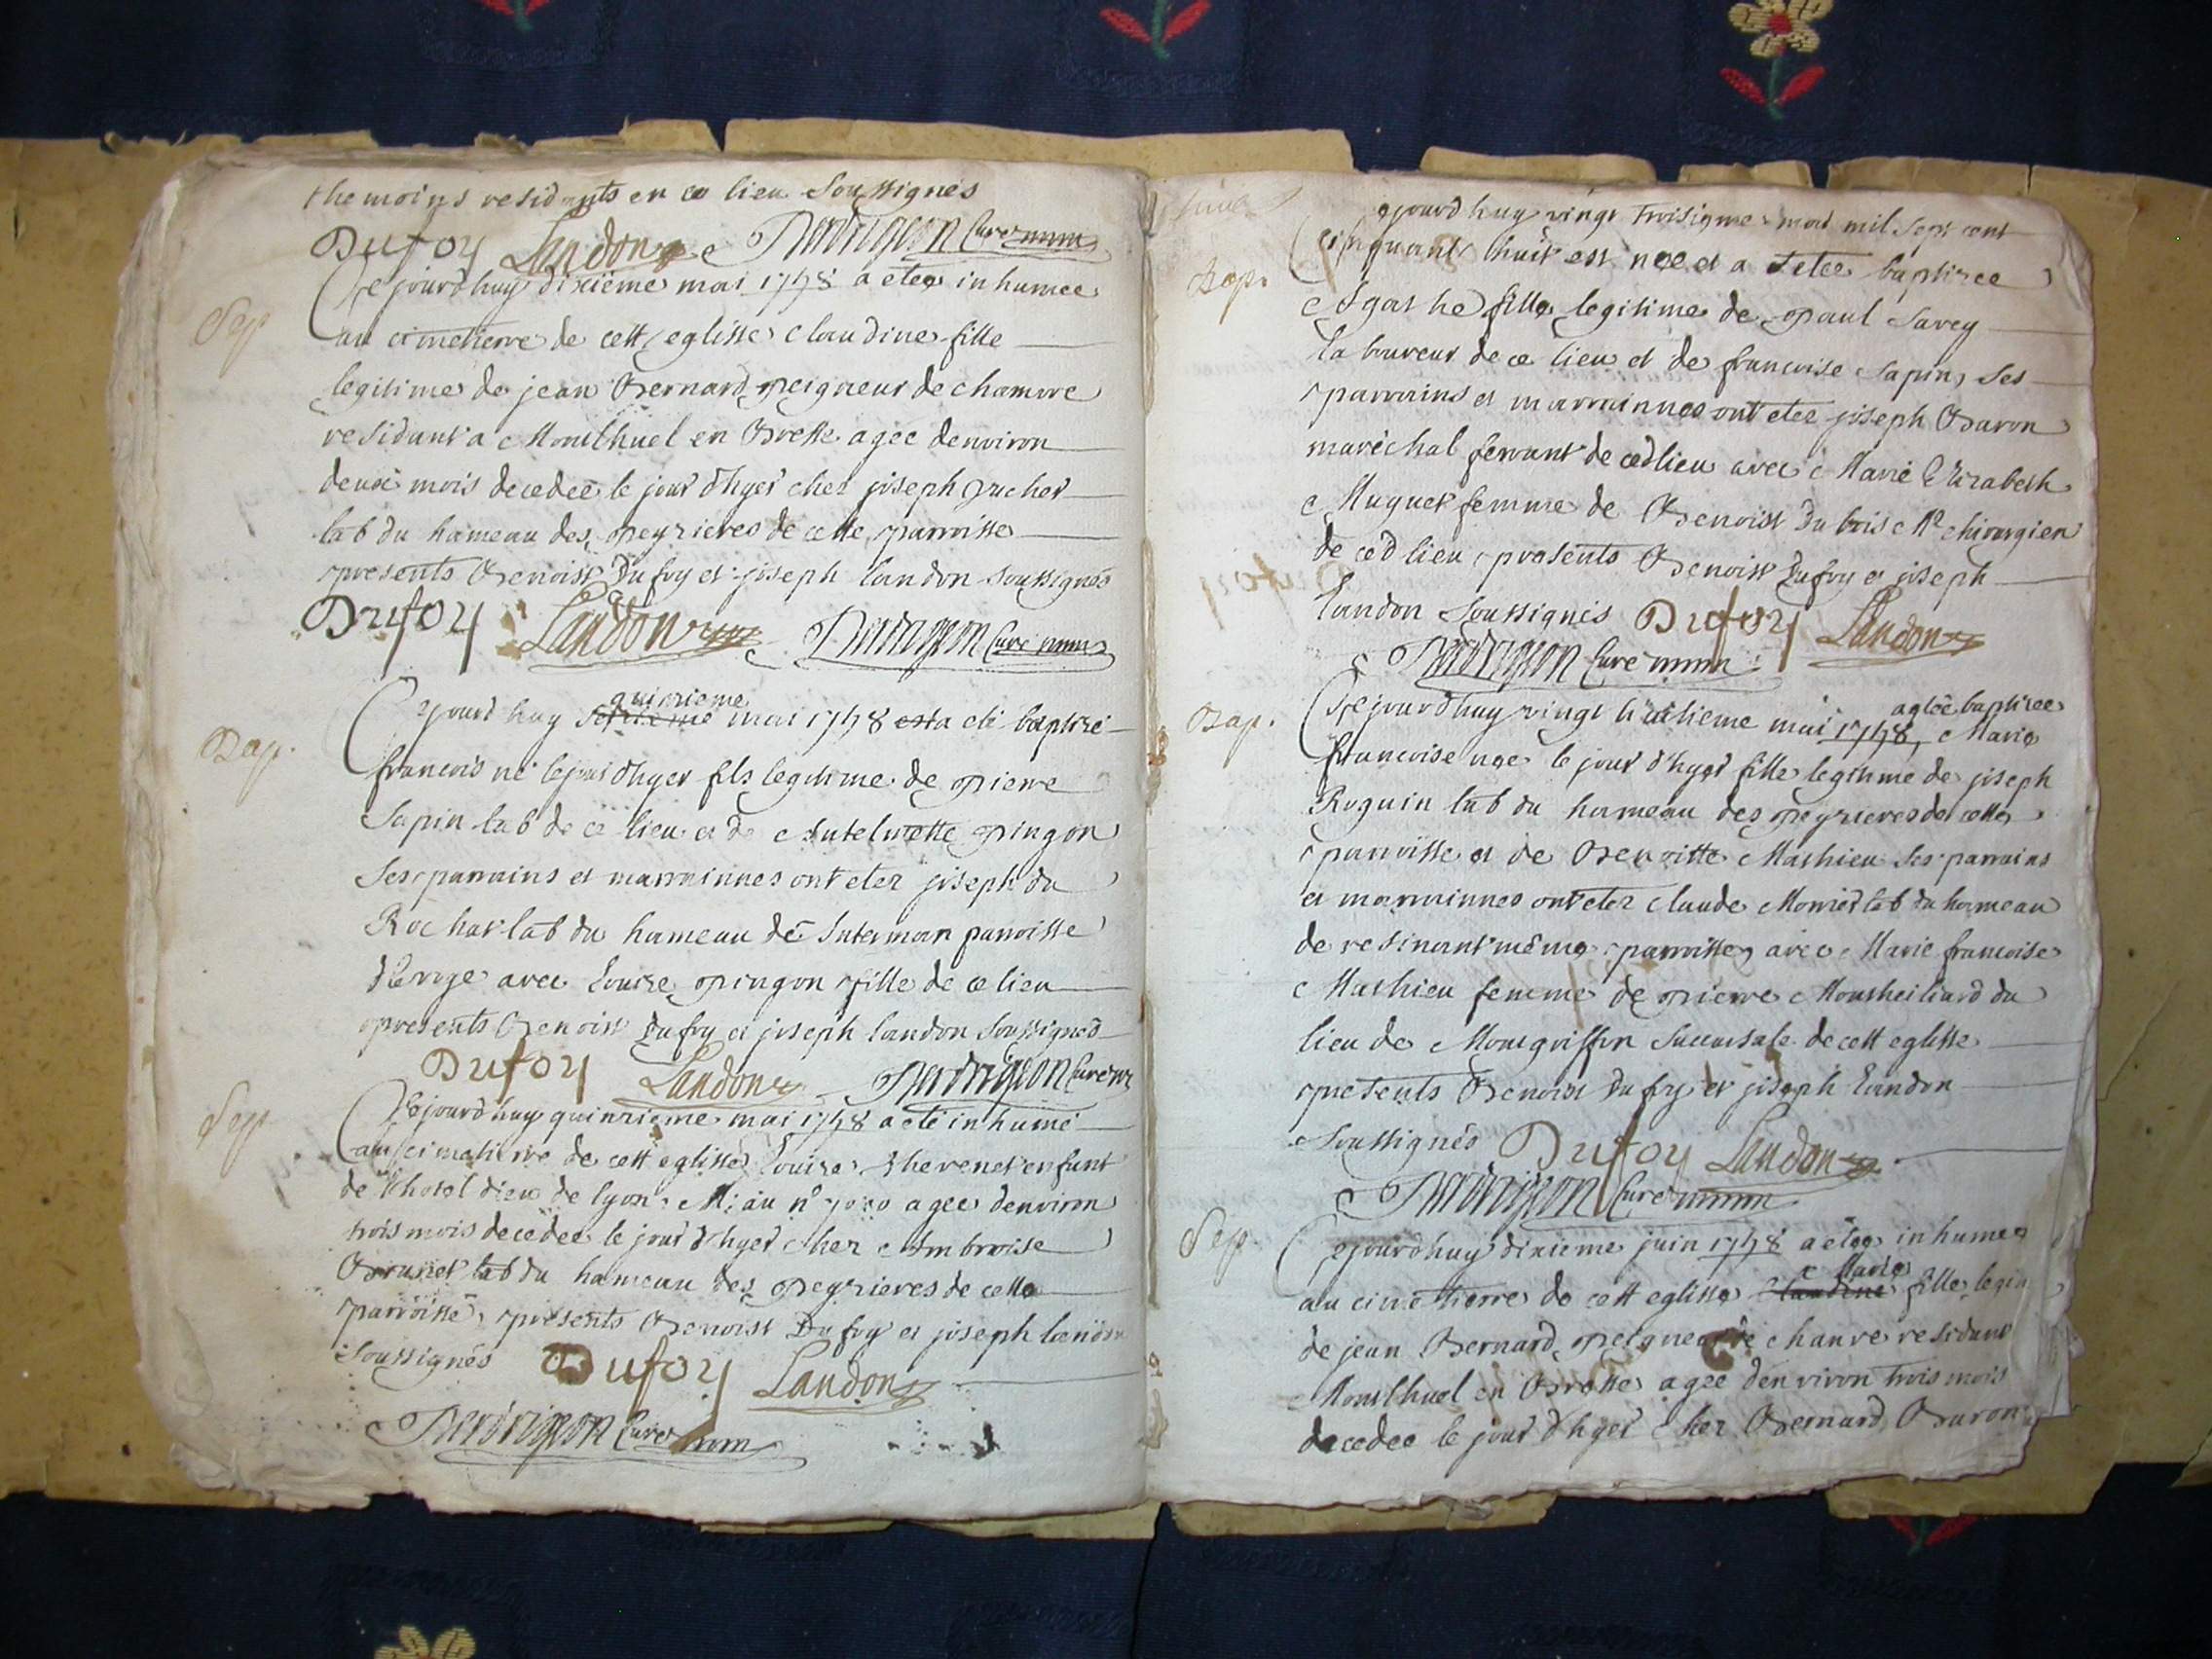 themoins residants en ce lieu soussignés
Dufoy Landon Perdrigeon Curé
Sep
Cejourdhuy dixième mai 1758 a eteé inhumee
au cimetierre de cett eglisse Claudine fille
legitime de jean Bernard peigneur de chamvre
residant a Montlhuel en Bresse agee denviron
deux mois decedeé le jour d'hyer chez joseph
lab du hameau des peyzieres de cette parroisse
presents Benoist Dufoy et joseph Landon soussignés
Dufoy Landon Perdrigeon Curé
Bap.
Cejourdhuy septieme quinzieme mai 1758 est a eté baptizé
francois né le jour d'hyer fils legitime de pierre
Sapin lab de ce lieu et de pingon
Ses parrains et marrainnes ont etez joseph du
Rochat lab du hameau de parroisse
avec Louise pingon fille de ce lieu
presents Benoist Dufoy et joseph Landon soussignés
Dufoy Landon Perdrigeon Curé
Sep
Cejourdhuy quinzieme mai 1758 a eté inhumé
au cimetierre de cett eglisse Louise thevenet enfant
de l'hotel dieu de lyon au n° agee denviron
trois mois decedee le jour d'hyer chez Ambroise
lab du hameau des peyzieres de cette
parroisse, presents Benoist Dufoy et joseph landon
soussignés Dufoy Landon
Perdrigeon Curé
Bap.
Cejourdhuy vingt troisiyme mai mil sept cent
cinquant huit est neé et a eteé baptizee
Agathe fille legitime de paul Savey
laboureur de ce lieu et de francoise Sapin, Ses
parrains et marrainnes ont etez joseph Baron
maréchal ferrant de ced lieu avec Marie Elizabeth
Muguet femme de Benoist Dubois Me chirurgien
de ced lieu presents Benoist Dufoy et joseph
Landon soussignés Dufoy Landon
Perdrigeon Curé
Bap.
Cejourdhuy vingt huitieme mai 1758, a eteé baptizee Marie
francoise neé le jour d'hyer fille legitime de joseph
Roguin lab du hameau des peyzieres de cette
parroisse et de Benoitte Mathieu Ses parrains
et marrainnes ont etez claude Monier lab du hameau
de resinant même parroisse, avec Marie francoise
Mathieu femme de pierre du
lieu de succursale de cett eglisse
presents Benoist Dufoy et joseph Landon
soussignés Dufoy Landon
Perdrigeon Curé
Sep
Cejourdhuy dixieme juin 1758 a eteé inhumeé
au cimetierre de cett eglisse Claudine Marie fille
de jean Bernard peigneur de chanvre residant
Montlhuel en Bresse agee denviron trois mois
decedee le jour d'hyer chez Bernard Baron